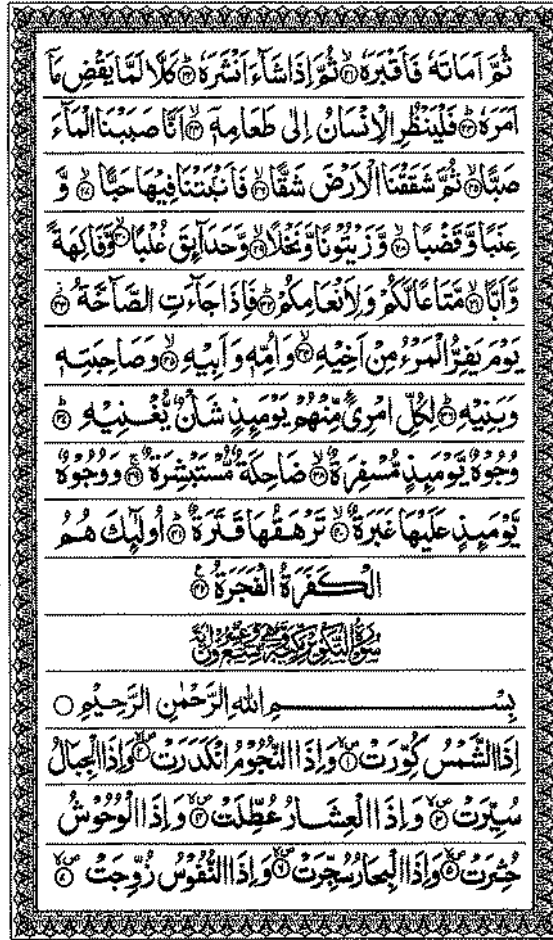 ثُمَّ اَمَاتَهٗ فَاَقْبَرَهٗ ۙ﴿۲۱﴾ ثُمَّ اِذَا شَآءَ اَنْشَرَهٗ ؕ﴿۲۲﴾ كَلَّا لَمَّا يَقْضِ مَاۤ
اَمَرَهٗ ؕ﴿۲۳﴾ فَلْيَنْظُرِ الْاِنْسَانُ اِلٰى طَعَامِهٖۤ ۙ﴿۲۴﴾ اَنَّا صَبَبْنَا الْمَآءَ
صَبًّا ۙ﴿۲۵﴾ ثُمَّ شَقَقْنَا الْاَرْضَ شَقًّا ۙ﴿۲۶﴾ فَاَنْۢبَتْنَا فِيْهَا حَبًّا ۙ﴿۲۷﴾ وَّ
عِنَبًا وَّقَضْبًا ۙ﴿۲۸﴾ وَّزَيْتُوْنًا وَّنَخْلًا ۙ﴿۲۹﴾ وَّحَدَآئِقَ غُلْبًا ۙ﴿۳۰﴾ وَّفَاكِهَةً
وَّاَبًّا ۙ﴿۳۱﴾ مَّتَاعًا لَّكُمْ وَلِاَنْعَامِكُمْ ؕ﴿۳۲﴾ فَاِذَا جَآءَتِ الصَّآخَّةُ ؗ﴿۳۳﴾
يَوْمَ يَفِرُّ الْمَرْءُ مِنْ اَخِيْهِ ۙ﴿۳۴﴾ وَاُمِّهٖ وَاَبِيْهِ ۙ﴿۳۵﴾ وَصَاحِبَتِهٖ
وَبَنِيْهِ ؕ﴿۳۶﴾ لِكُلِّ امْرِئٍ مِّنْهُمْ يَوْمَئِذٍ شَاْنٌ يُّغْنِيْهِ ؕ﴿۳۷﴾
وُجُوْهٌ يَّوْمَئِذٍ مُّسْفِرَةٌ ۙ﴿۳۸﴾ ضَاحِكَةٌ مُّسْتَبْشِرَةٌ ۚ﴿۳۹﴾ وَوُجُوْهٌ
يَّوْمَئِذٍ عَلَيْهَا غَبَرَةٌ ۙ﴿۴۰﴾ تَرْهَقُهَا قَتَرَةٌ ؕ﴿۴۱﴾ اُولٰٓئِكَ هُمُ
الْكَفَرَةُ الْفَجَرَةُ ﴿۴۲﴾
سُوْرَةُ التَّكْوِيْرِ مَكِّيَّةٌ وَّهِيَ تِسْعٌ وَّعِشْرُوْنَ اٰيَةً
بِسْمِ اللّٰهِ الرَّحْمٰنِ الرَّحِيْمِ ○
اِذَا الشَّمْسُ كُوِّرَتْ ﴿۱﴾ وَاِذَا النُّجُوْمُ انْكَدَرَتْ ﴿۲﴾ وَاِذَا الْجِبَالُ
سُيِّرَتْ ﴿۳﴾ وَاِذَا الْعِشَارُ عُطِّلَتْ ﴿۴﴾ وَاِذَا الْوُحُوْشُ
حُشِرَتْ ﴿۵﴾ وَاِذَا الْبِحَارُ سُجِّرَتْ ﴿۶﴾ وَاِذَا النُّفُوْسُ زُوِّجَتْ ﴿۷﴾